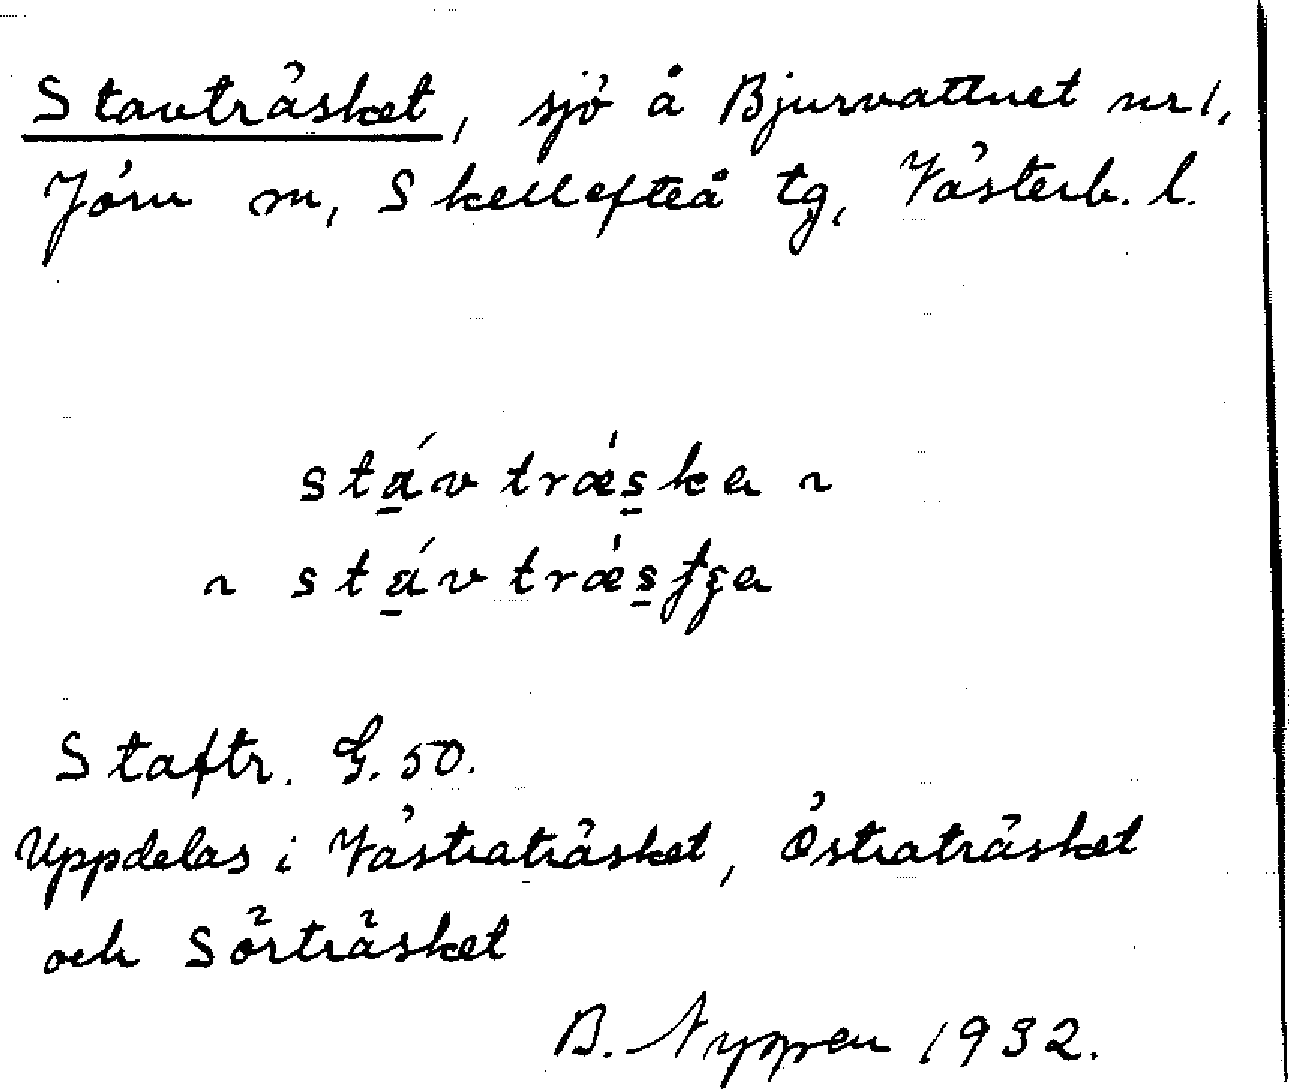 Stavträsket, sjö å Bjurvattnet nr 1,
Jörn sn, Skellefteå tg, Västerb. l.
stáv træ̍ska ~
~ stáv træ̍sʃga
Staftr. G. 50.
Uppdelas i Västraträsket, Östraträsket
och Sörträsket
B. 1932.